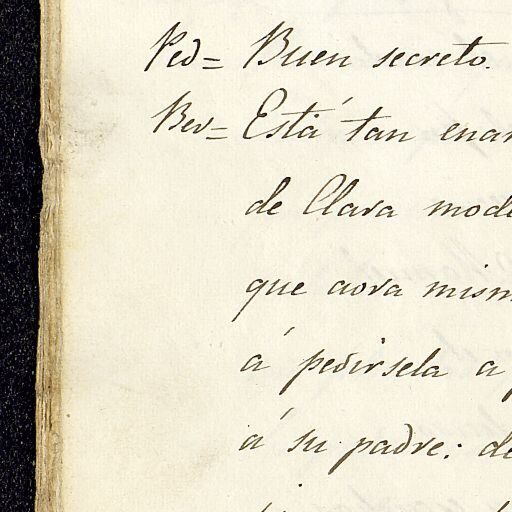 Ped= Buen secreto.
Ber= Está tan enam
de Clara mode
que aora mism
á pedirsela a p
á su padre: de